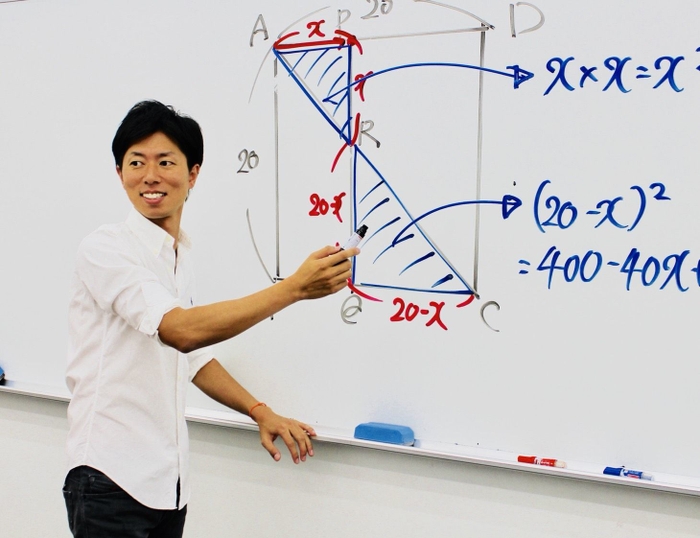 20
A
x
P
D
x
x×x=x²
R
20
20-x
(20-x)²
=400-40x+
Q
20-x
C